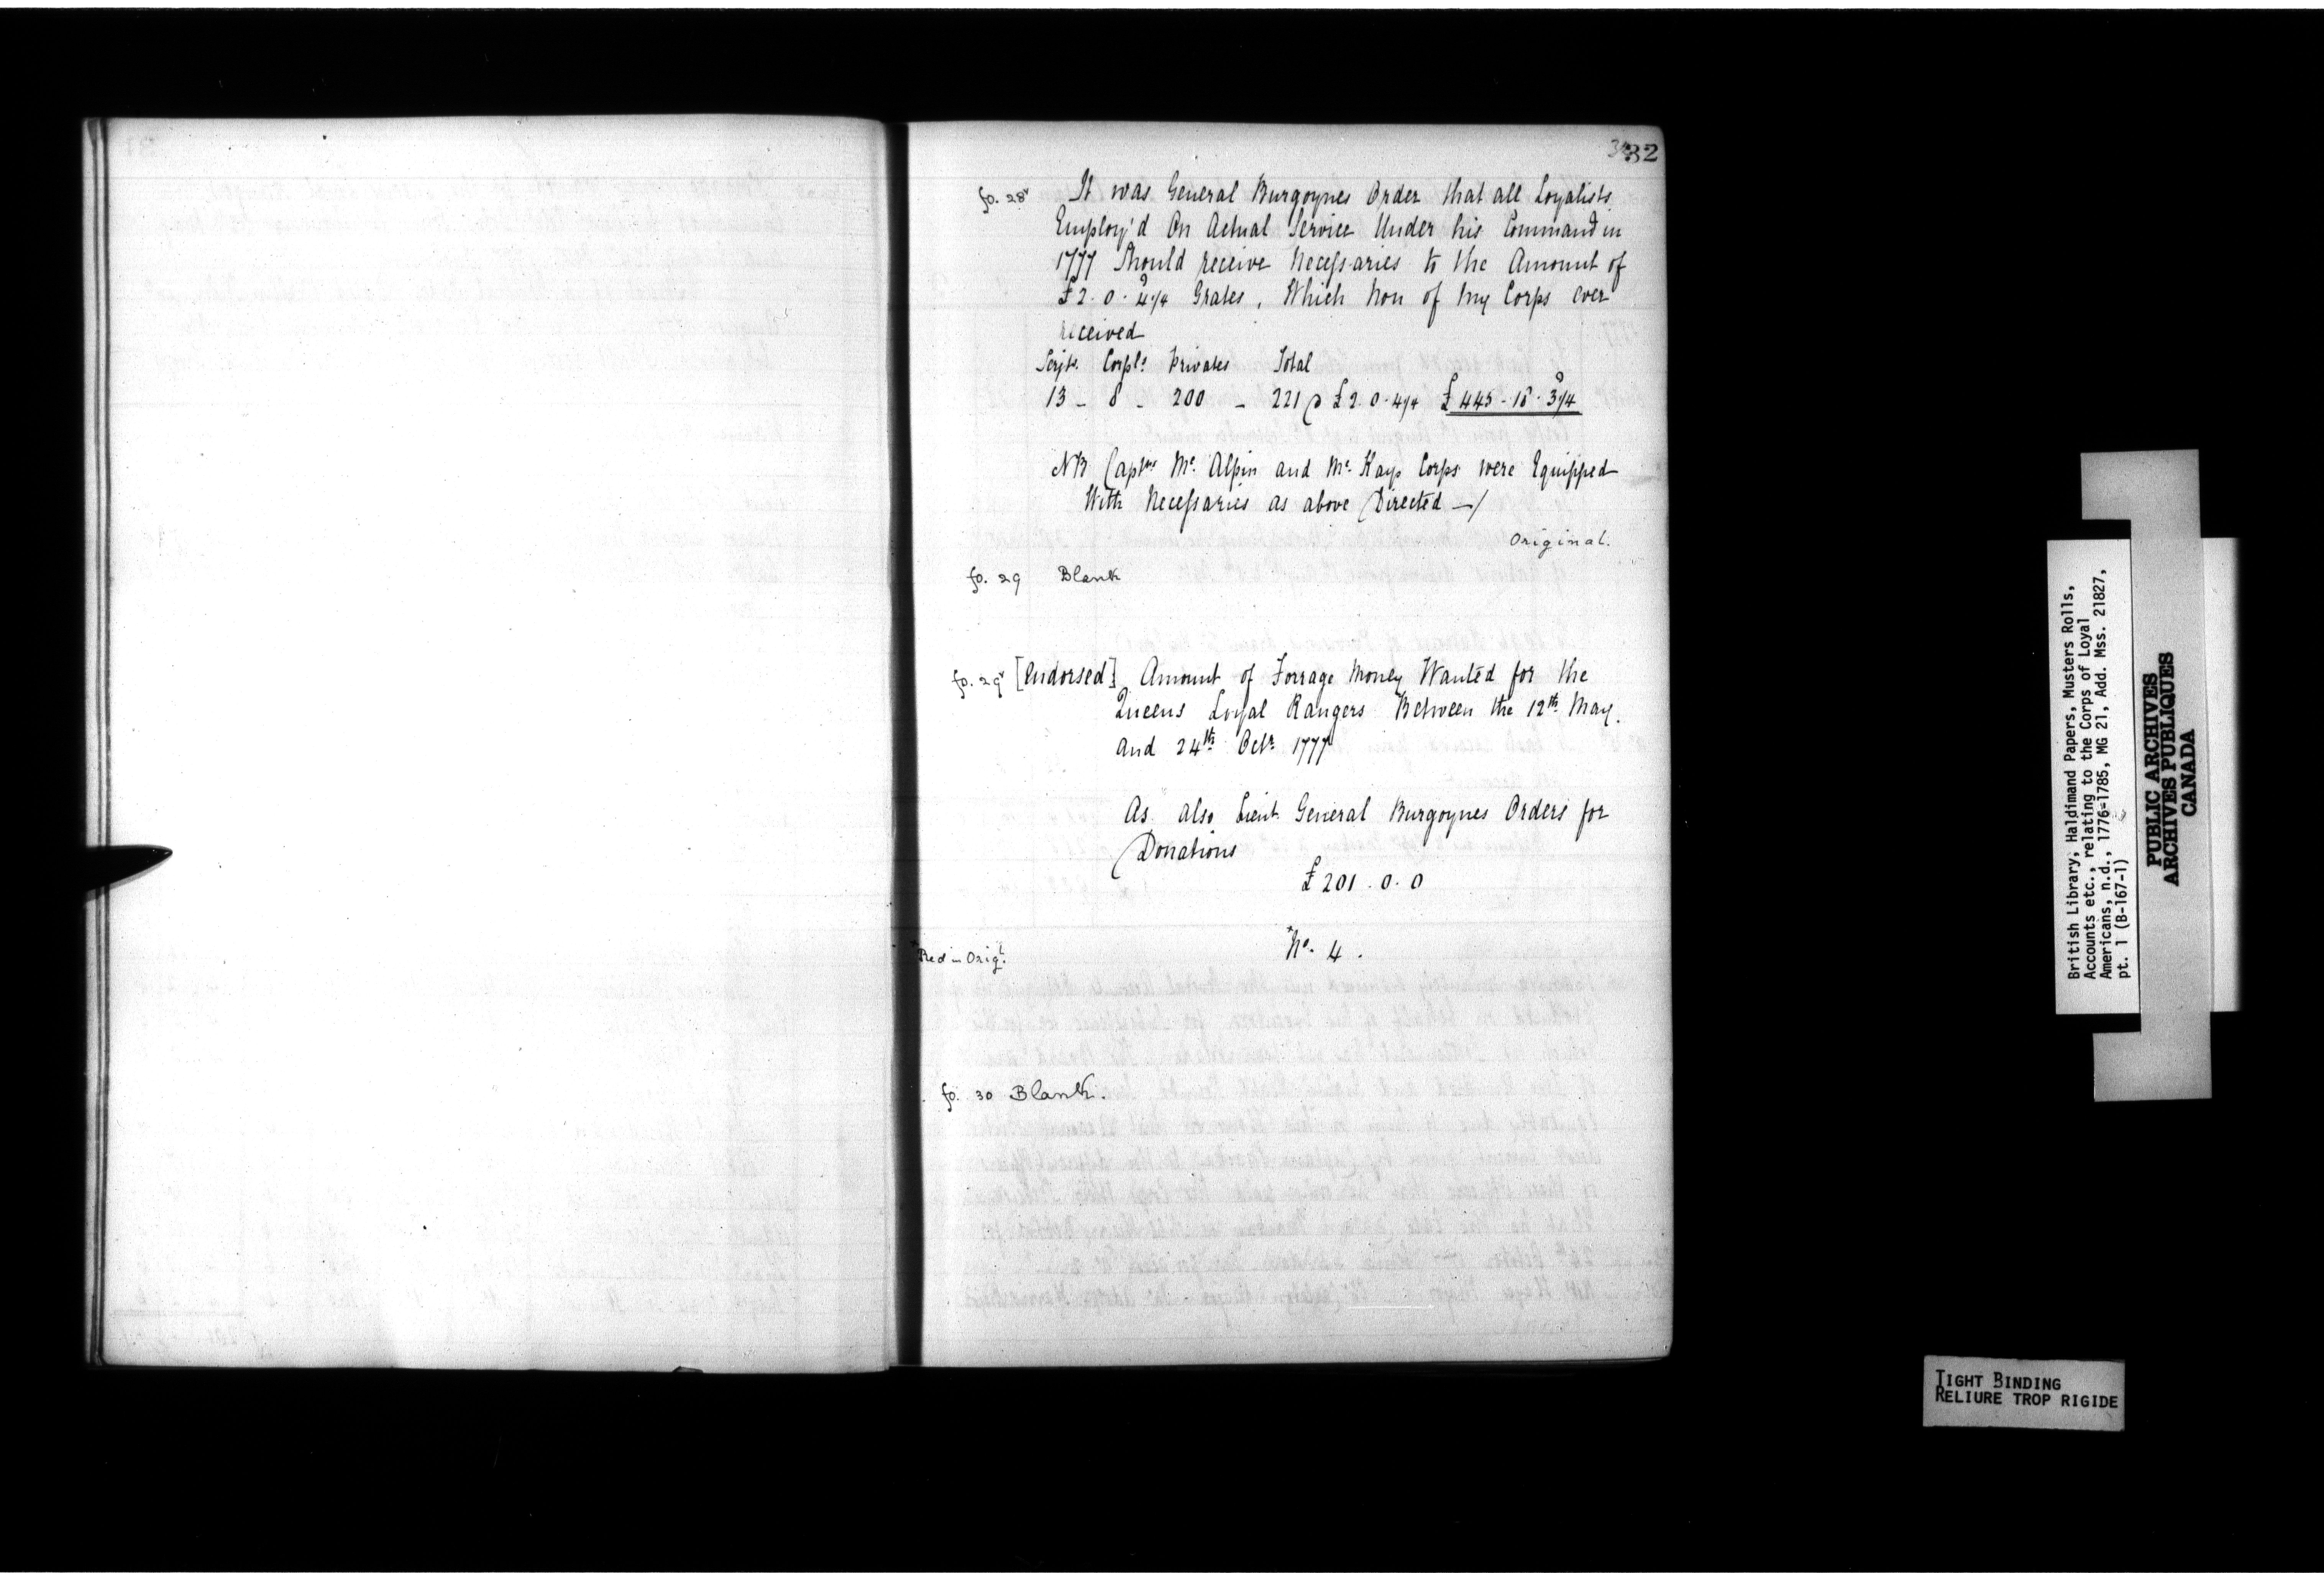 32
fo. 28v It was General Burgoynes Order that all Loyalists
Employ'd On Actual Service Under his Command in
1777 Should receive Necessaries to the Amount of
£2.0.4¾ Grates, Which Non of my Corps ever
received
Serjts. Corpls. Privates Total
13 _ 8 _ 200 _ 221 @ £2.0.4¾ £445.18.3¾
NB Captns Mc. Alpin and Mc. Kays Corps were Equipped
With Necessaries as above Directed —/
Original.
fo. 29 Blank
fo. 29v [Endorsed] Amount of Forrage Money Wanted for the
Queens Loyal Rangers Between the 12th. May
and 24th. Octr. 1777
As also Lieut. General Burgoynes Orders for
Donations
£201.0.0
*Red in Origl. *No. 4.
fo. 30 Blank.
British Library, Haldimand Papers, Musters Rolls,
Accounts etc., relating to the Corps of Loyal
Americans, n.d., 1776-1785, MG 21, Add. Mss. 21827,
pt. 1 (B-167-1)
PUBLIC ARCHIVES
ARCHIVES PUBLIQUES
CANADA
TIGHT BINDING
RELIURE TROP RIGIDE